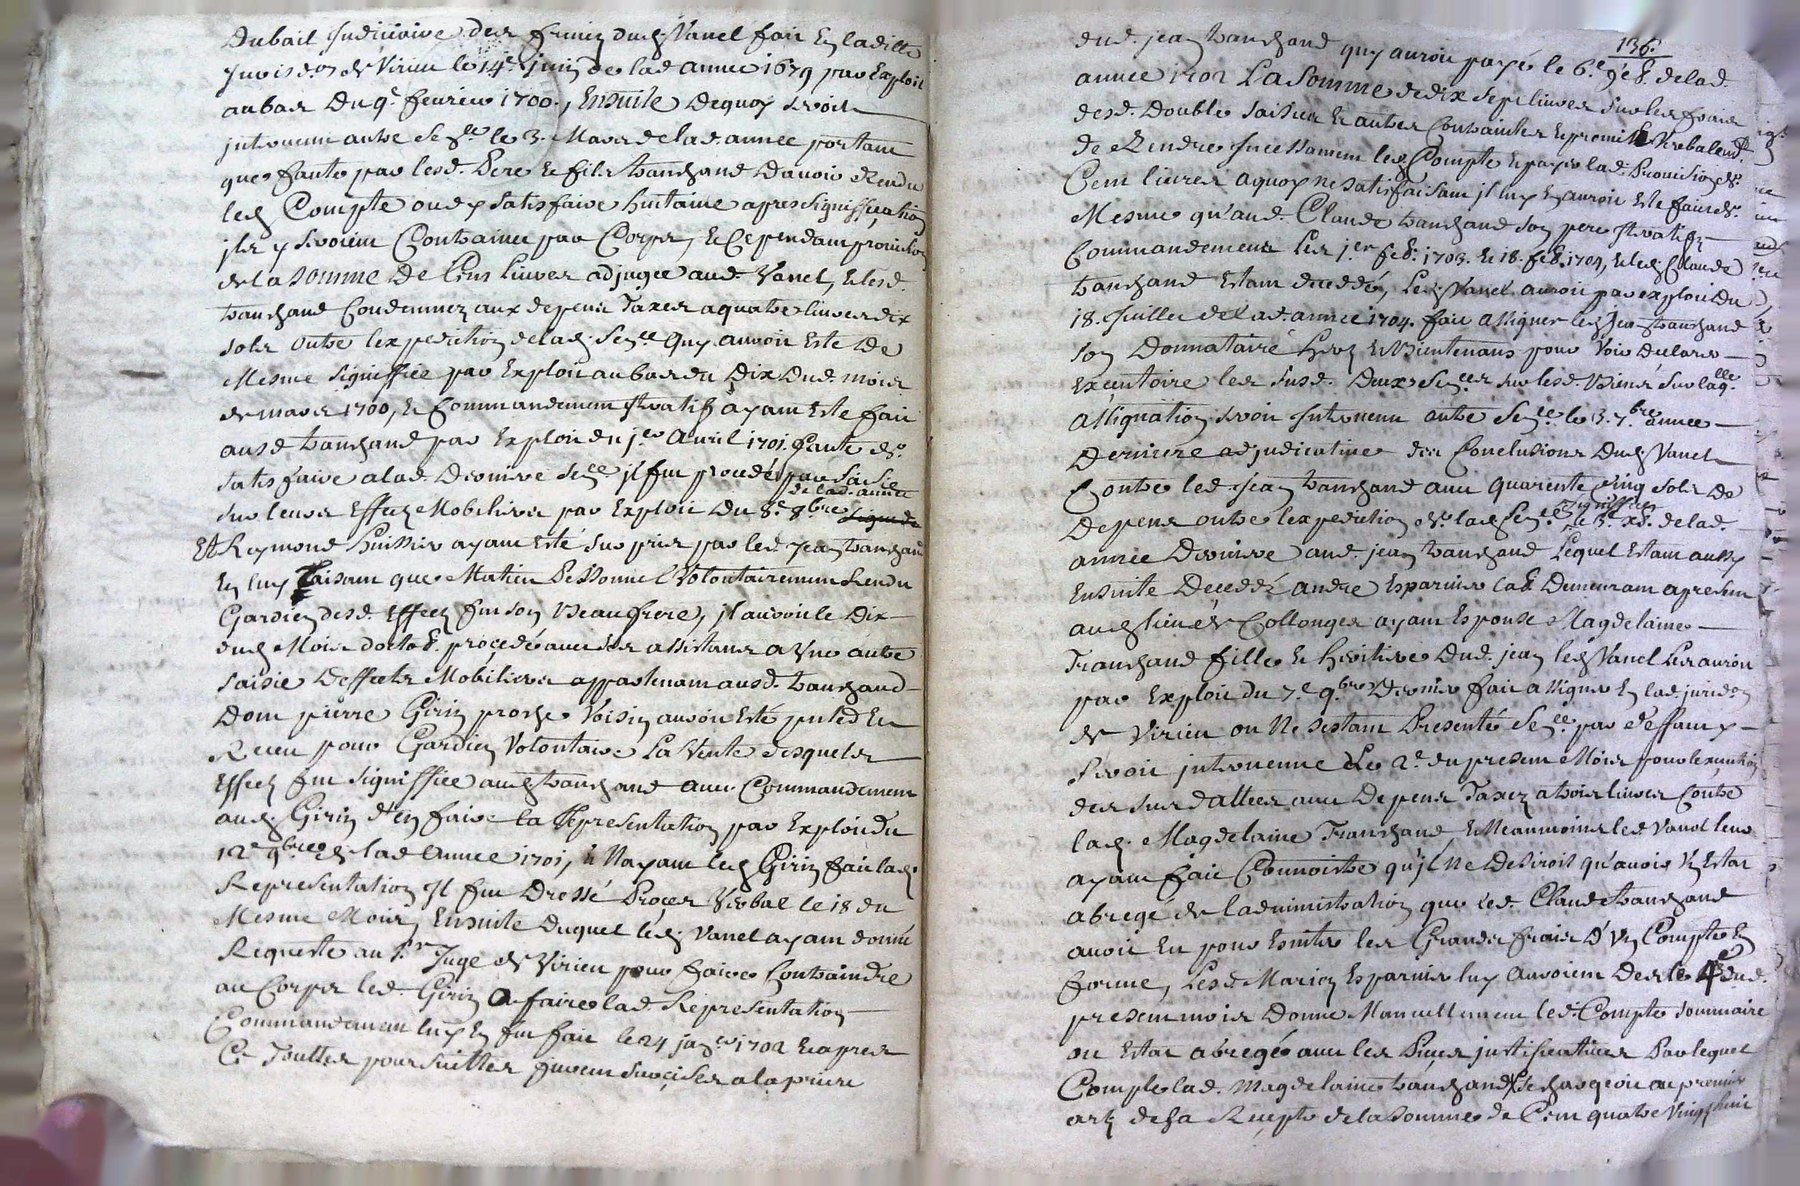 Dubail Judiciaire des fruits dud Vanel fait En laditte
Jurisd.on de Virieu le 14e juin de lad annee 1679 par Exploit
au bas Du 9e feurier 1700, Ensuite Dequoy seroit
jntervenu autre Sece le 3. Mars de lad. annee portant
que faute par lesd. Pere et fils tranchand Dauoir Rendu
led Compte oud y satisfaire huitaine apres signiffication
jls y seroient Contraincts par Corps, et Cependant prouision
de la somme De Cent Liures adjugee aud Vanel, et lesd.
tranchand Condemnez aux depens Taxes a quatre liures dix
sols outre lexpedition de lad. Sece Quy auroit Esté De
Mesme signiffiée par Exploit au bas du Dix Dud. mois
de mars 1700, et Commandement jteratif ayant Esté fait
ausd tranchand par Exploit du jer Auril 1701. faute de
satisfaire a lad. Derniere Sece jl fut procedé par saisie
sur leurs Effects Mobiliers par Exploit Du 8e 8bre de lad. annee
Et Reymond huissier ayant Esté surpris par led. Jean tranchand
En luy faisant que Mathieu Pessonnel Volontairement Rendu
Gardien desd. Effects fut son Beaufrere, jl auroit le Dix
dud. Mois docto8. procedé auec des assistans a Vne autre
saisie Deffects Mobiliers appartenant ausd. tranchand
Dont pierre Girin proche Voisin auroit Esté
Receu pour Gardien Volontaire La Vente desquels
Effects fut signiffiée aud tranchand auec Commandement
aud. Girin d'en faire la Representation par Exploit du
12e 9bre de lad Annee 1701, et Nayant led Girin fait lad.
Representation Jl fut Dressé Proces Verbal le 18 du
Mesme Mois, Ensuite Duquel led. Vanel ayant donné
Requeste au Sr Juge de Virieu pour faire Contraindre
au Corps led. Girin a faire lad. Representation
Commandement luy En fut fait le 24 janer 1702 Et apres
Ce Touttes poursuittes furent surcises a la priere
136.
dud. jean tranchand quy auroit payé le 6.e 9.e8. de lad.
annee 1702 La somme de dix sept liures sur les frais
desd. Double saisies et autres Contraintes et promit Verbalemt
de Rendre Incessament led Compte et payer lad. Prouision de
Cent liures a quoy ne satisfaisant jl luy En auroit Esté fait de
Mesme qu'aud. Claude tranchand son pere jteratifs
Commandements Les j.er fe8. 1703. et 18. fe8. 1704, et led Claude
tranchand Estant decedé, Led Vanel auroit par exploit Du
18. Juillet de lad. annee 1704. fait assigner led Jean tranchand
son Donnataire heor et Bientenant pour Voir declarer
Executoire les susd. Deux Sences sur lesd. Biens sur laqlle
assignation seroit Intervenu autre Sece le 3. 7.bre annee
Derniere adjudicatiue des Conclusions Dud Vanel
Contre led. jean tranchand auec quarente cinq sols de
Depens outre lexpedition de lad Sence signiffiée le 3. x8. de lad.
annee Derniere aud. jean tranchand Lequel Estant aussy
Ensuite Decedé andré Esparnier La8. Demeurant a present
aud lieu de Collonges ayant Espousé Magdelaine
Tranchand fille et heritiere Dud. jean led Vanel Les auroit
par Exploit du 7.e 9.bre Dernier fait assigner En lad. jurisdon
de Virieu ou Ne sestant Presenté Sece par deffaut y
seroit jntervenue Le 2.e du present Mois pour lexecution
des susdattees auec Depens Taxez a trois liures Contre
lad. Magdelaine Tranchand, et Neanmoins led Vanel leur
ayant fait Connoistre qu'jl ne desiroit qu'auoir Vn Estat
abregé de ladministration que led. Claude tranchand
auoit Eu pour Esuiter les Grands frais d'Vn Compte En
forme, Lesd Mariez Esparnier luy auroient Des le 4e dud.
present mois Donné Manuellement led. Compte sommaire
ou Estat abregé auec les Pieces justificatiues Par lequel
Compte lad. Magdelaine tranchand se chargeoit au premier
art. de sa Recepte de la somme de Cent quatre Vingt huit